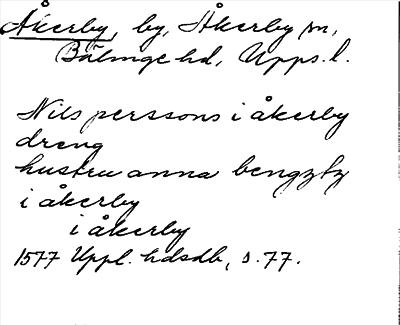 Åkerby, by, Åkerby sn,
Bälinge hd, Upps. l.
Nils perssons i åkerby
dreng
hustru anna bengzty
i åkerby
i åkerby
1577 Uppl. hdsdb, s. 77.